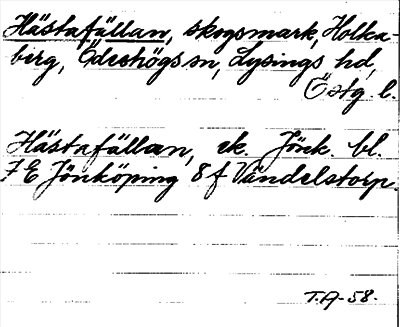 Hästafällan, skogsmark, Holka-
berg, Ödeshögs sn, Lysings hd,
Östg. l.
Hästafällan, ek. Jönk. bl.
7 E Jönköping 8 f Vändelstorp.
T.A-58.